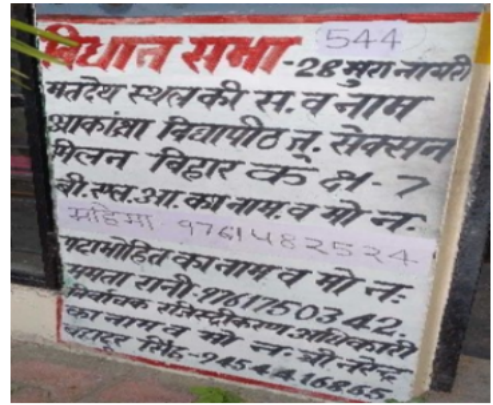 विधान सभा - 544
28 मुरानायरी
मतदेय स्थल की स. व नाम
आकांक्षा विद्यापीठ जू. सेक्सन
मिलन विहार क क्ष - 7
बी. एल. आ. का नाम. व मो न.
महिमा 9761482524
पदामोहित का नाम व मो न:
ममता रानी. 9761750342.
निर्वाचक रजिस्ट्रीकरण अधिकारी
का नाम व मो न: श्री. नरेन्द्र
बहादुर सिंह - 9454416865.